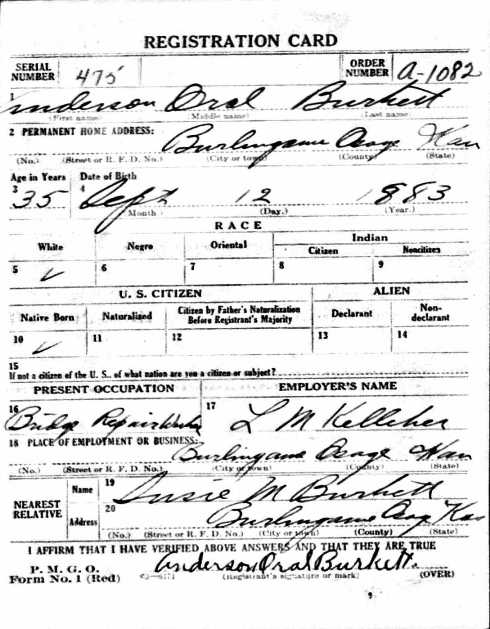 REGISTRATION CARD
SERIAL NUMBER 475 ORDER NUMBER A-1082
1 Anderson Oral Burkett
(First name) (Middle name) (Last name)
2 PERMANENT HOME ADDRESS: Burlingame Osage Kan
(No.) (Street or R. F. D. No.) (City or town) (County) (State)
Age in Years Date of Birth
3 35 4 Sept 12 1883
Month (Day.) (Year.)
RACE
White Negro Oriental Indian
Citizen Noncitizen
5 ✓ 6 7 8 9
U. S. CITIZEN ALIEN
Native Born Naturalized Citizen by Father's Naturalization Before Registrant's Majority Declarant Non-declarant
10 ✓ 11 12 13 14
15
If not a citizen of the U. S., of what nation are you a citizen or subject?
PRESENT OCCUPATION EMPLOYER'S NAME
16 Bridge Repair Work 17 L M Kelleher
18 PLACE OF EMPLOYMENT OR BUSINESS:
Burlingame Osage Kan
(No.) (Street or R. F. D. No.) (City or town) (County) (State)
NEAREST RELATIVE Name 19 Susie M Burkett
Address 20 Burlingame Osg Kas
(No.) (Street or R. F. D. No.) (City or town) (County) (State)
I AFFIRM THAT I HAVE VERIFIED ABOVE ANSWERS AND THAT THEY ARE TRUE
P. M. G. O.
Form No. 1 (Red) Anderson Oral Burkett.
(Registrant's signature or mark) (OVER)